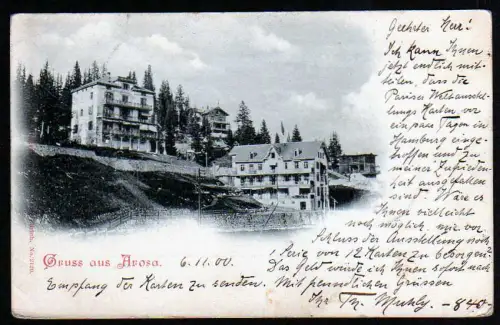 Geehrter Herr!
Ich kann Ihnen
jetzt endlich mit-
teilen, dass die
Pariser Weltausstel-
lungs Karten vor
ein paar Tagen in
Hamburg einge-
troffen und zu
meiner Zufrieden-
heit ausgefallen
sind. Wäre es
Ihnen vielleicht
noch möglich, mir vor
Schluss der Ausstellung noch
1 Serie von 12 Karten zu besorgen?
Das Geld würde ich Ihnen sofort nach
Empfang der Karten zu senden. Mit freundlichen Grüssen
Ihr Th.
Gruss aus Arosa.
6.11.00.